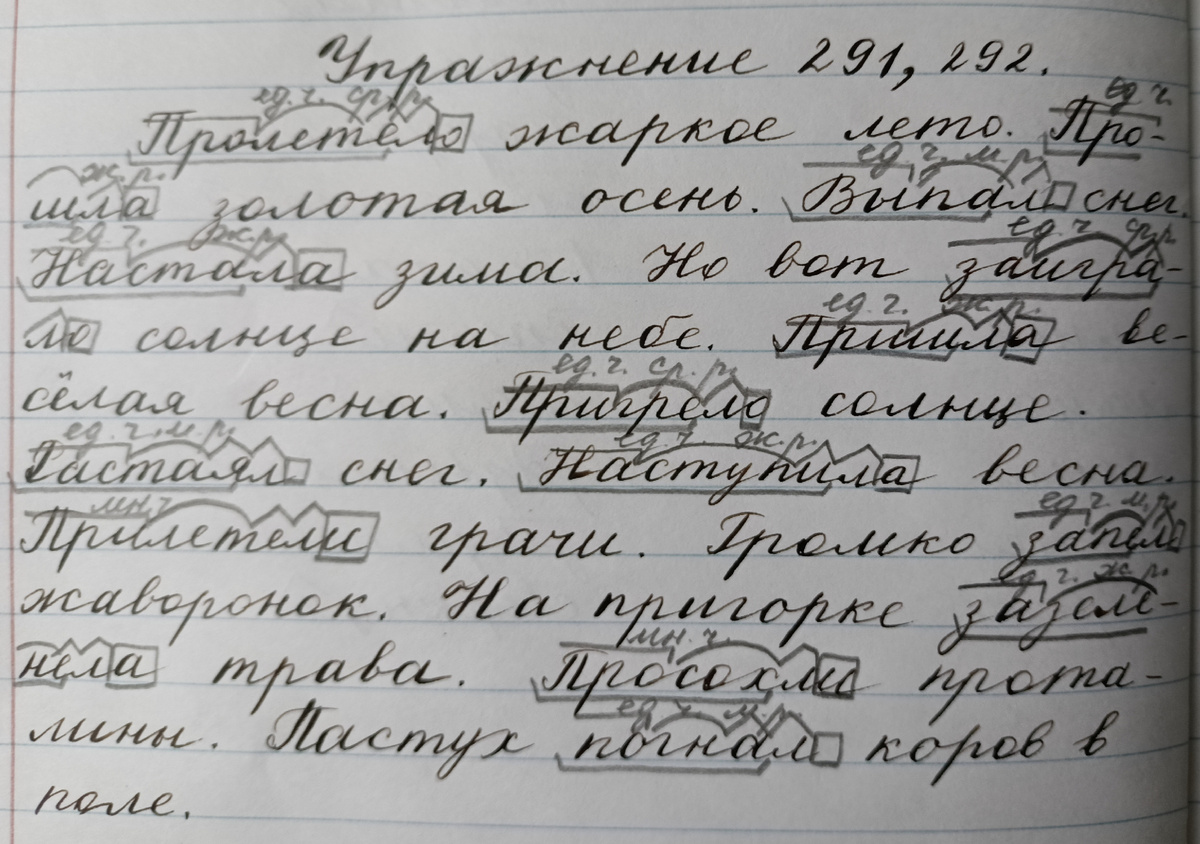 Упражнение 291, 292.
ед. ч. ср. р. ед ч.
Пролетело жаркое лето. Про-
ж. р. ед. ч. м. р.
шла золотая осень. Выпал снег.
ед. ч. ж. р. ед. ч ср. р.
Настала зима. Но вот заигра-
ед. ч. ж. р.
ло солнце на небе. Пришла ве-
ед. ч. ср. р.
сёлая весна. Пригрело солнце.
ед. ч. м. р. ед. ч. ж. р.
Растаял снег. Наступила весна.
мн. ч ед. ч. м. р.
Прилетели грачи. Громко запел
ед. ч. ж. р.
жаворонок. На пригорке зазеле-
мн. ч.
нела трава. Просохли прота-
ед. ч. м. р.
лины. Пастух погнал коров в
поле.